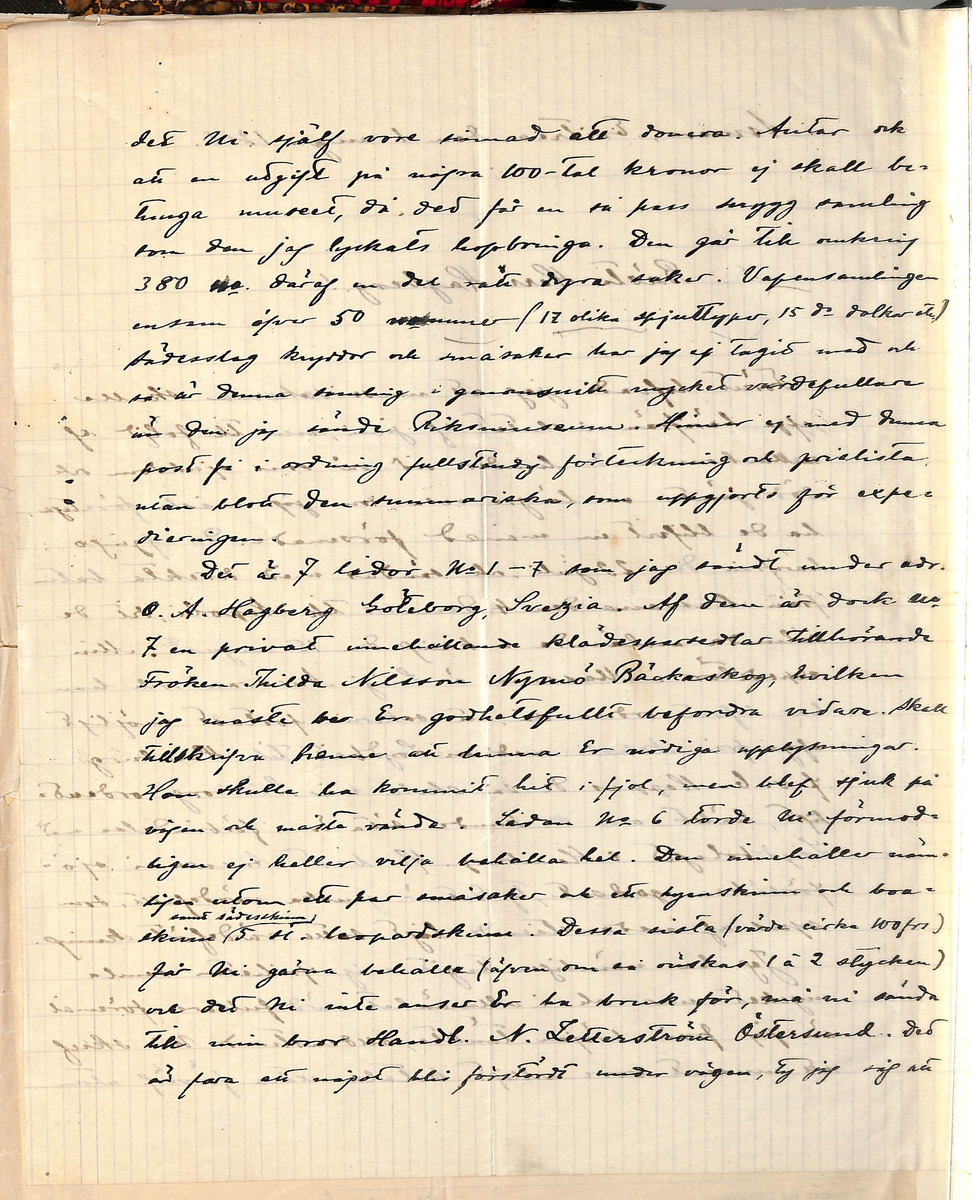 det Ni själf vore sinnad att donera. Antar ock
att en utgift på några 100-tal kronor ej skall be-
tunga museet, då det får en så pass snygg samling
som den jag lyckats hopbringa. Den går till omkring
380 no. däraf en del rätt dyra saker. Vapensamlingen
ensam öfver 50 nummer (17 olika spjuttyper, 15 do dolkar etc)
Sädesslag kryddor och småsaker har jag ej tagit med och
så är denna samling i genomsnitt mycket värdefullare
än den jag sände Riksmuseum. Hinner ej med denna
post få i ordning fullständig förteckning och prislista,
utan blott den summariska, som uppgjorts för expe-
dieringen.
Det är 7 lådor No 1-7 som jag sändt under adr.
O. A. Hagberg Göteborg, Svezia. Af dem är dock No
7 en privat innehållande klädespersedlar tillhörande
Fröken Thilda Nilsson Nymö Bäckaskog, hvilken
jag måste be Er godhetsfullt befordra vidare. Skall
tillskrifva henne att lemna Er nödiga upplysningar.
Hon skulle ha kommit hit i fjol, men blef sjuk på
vägen och måste vända. Lådan No 6 torde Ni förmod-
ligen ej heller vilja behålla hel. Den innehåller näm-
ligen utom ett par småsaker och ett hyenskinn och boa-
skinn 5 st. leopardskinn. Dessa sista (värde cirka 100 frs)
får Ni gärna behålla (äfven om så önskas 1 à 2 stycken)
och det Ni inte anser Er ha bruk för, må ni sända
till min bror Handl. N. Zetterström Östersund. Det
är fara att något blir förstördt under vägen, ty jag såg att